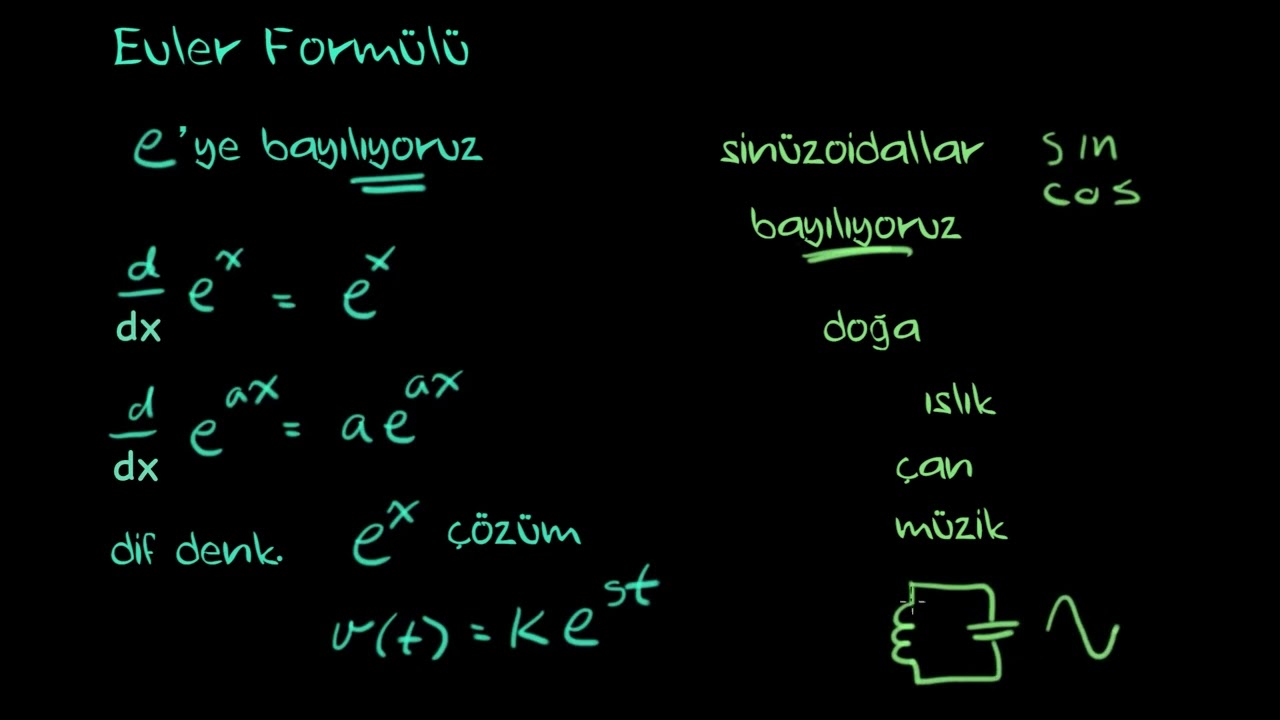 Euler Formülü
e'ye bayılıyoruz
d/dx e^x = e^x
d/dx e^ax = a e^ax
dif denk. e^x çözüm
v(t) = K e^st
sinüzoidallar sin
cos
bayılıyoruz
doğa
ıslık
çan
müzik